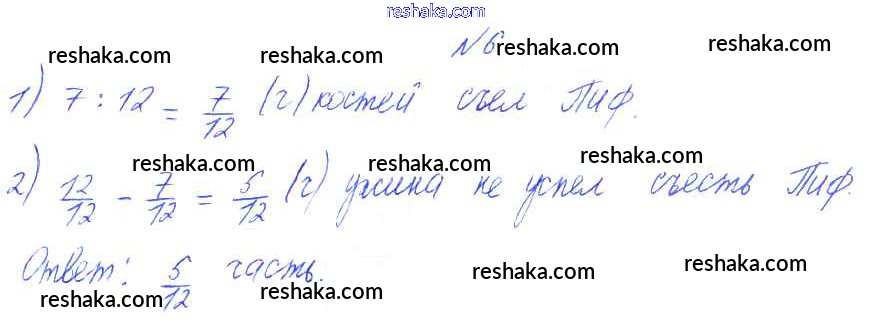 reshaka.com
reshaka.com reshaka.com №6 reshaka.com reshaka.com
1) 7 : 12 = 7/12 (ч) костей съел Пиф.
reshaka.com reshaka.com reshaka.com
2) 12/12 - 7/12 = 5/12 (ч) ужина не успел съесть Пиф.
Ответ: 5/12 часть.
reshaka.com reshaka.com reshaka.com reshaka.com